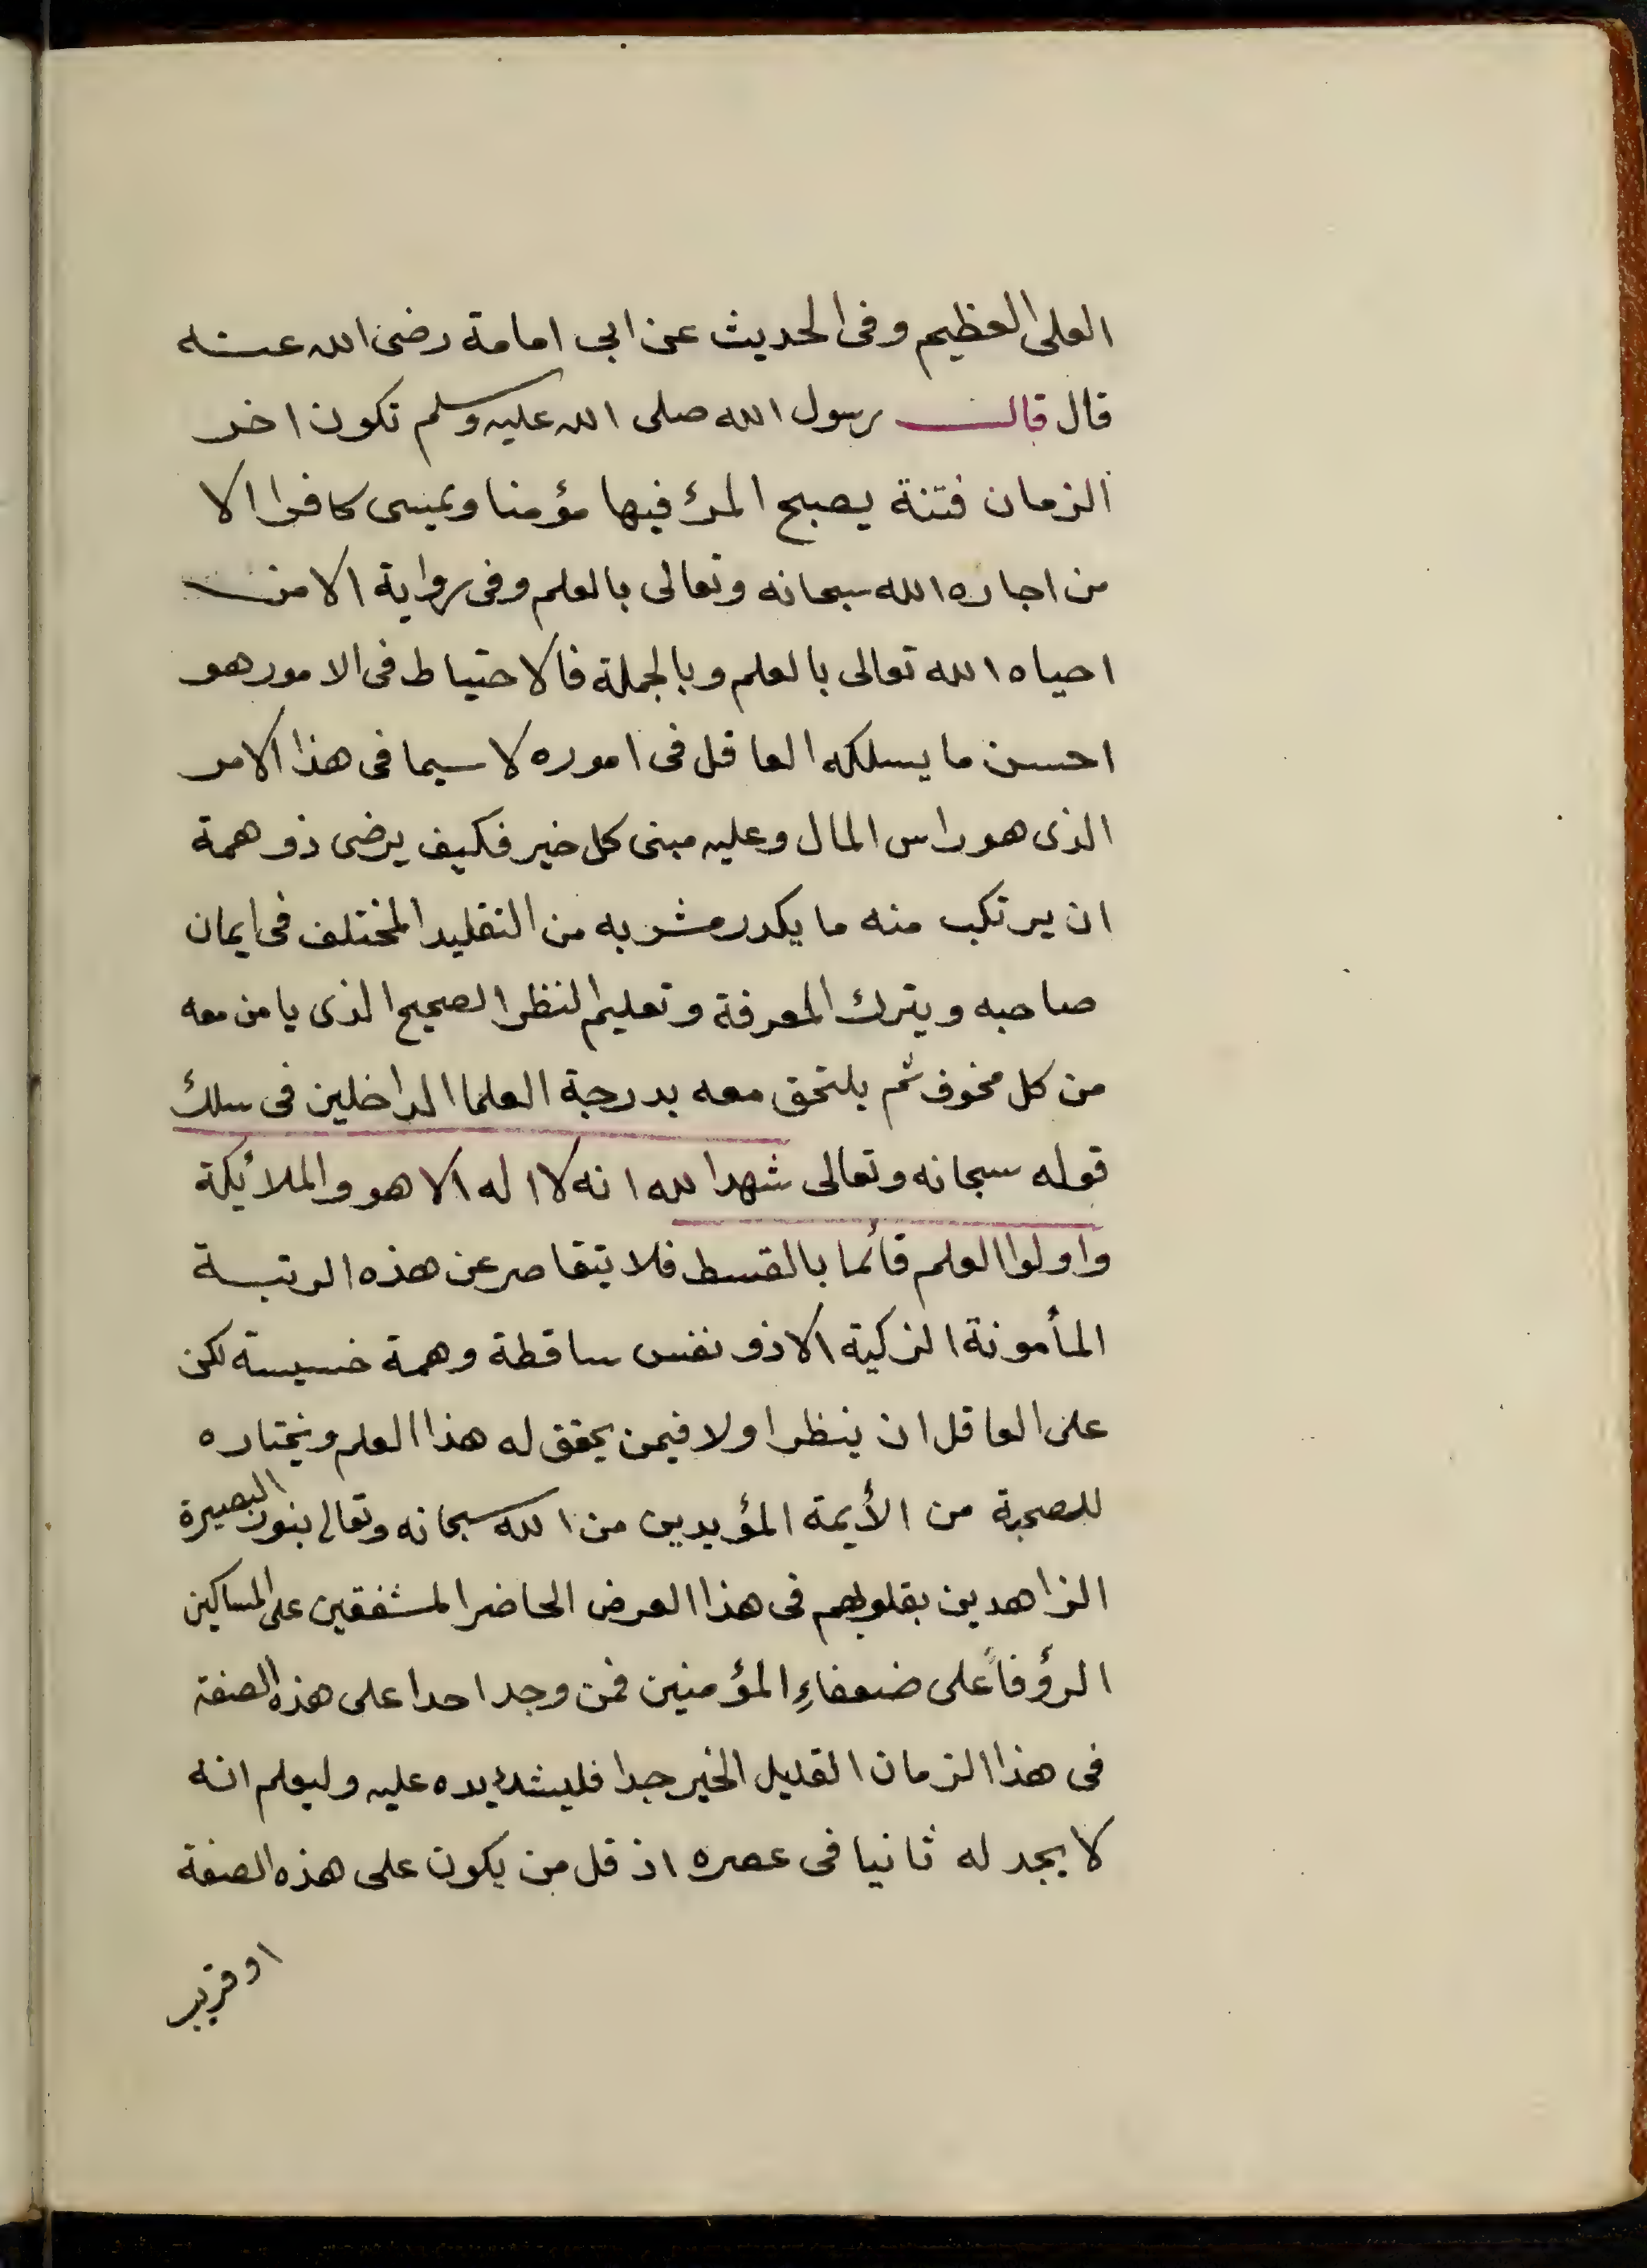 العلى العظيم وفى الحديث عن ابى امامة رضى الله عنه
قال قال رسول الله صلى الله عليه وسلم تكون اخر
الزمان فتنة يصبح المرؤ فيها مؤمنا ويمسى كافرا الا
من اجاره الله سبحانه وتعالى بالعلم وفى رواية الا من
احياه الله تعالى بالعلم وبالجملة فالاحتياط فى الامور هو
احسن ما يسلكه العاقل فى اموره لاسيما فى هذا الامر
الذى هو راس المال وعليه مبنى كل خير فكيف يرضى ذو همة
ان يرتكب منه ما يكدر مشربه من التقليد المختلف فى ايمان
صاحبه ويترك المعرفة وتعليم النظر الصحيح الذى يامن معه
من كل مخوف ثم يلتحق معه بدرجة العلما الداخلين فى سلك
قوله سبحانه وتعالى شهد الله انه لا اله الا هو والملائكة
واولوا العلم قائما بالقسط فلا يتقاصر عن هذه الرتبة
المأمونة الزكية الا ذو نفس ساقطة وهمة خسيسة لكن
على العاقل ان ينظر اولا فيمن يحقق له هذا العلم ويختاره
للصحبة من الأيمة المؤيدين من الله سبحانه وتعالى بنور البصيرة
الزاهدين بقلوبهم فى هذا العرض الحاضر المشفقين على المساكين
الرؤفاً على ضعفاءِ المؤمنين فمن وجد احدا على هذه الصفة
فى هذا الزمان القليل الخير جدا فليشد يده عليه وليعلم انه
لا يجد له ثانيا فى عصره اذ قل من يكون على هذه الصفة
او قريب